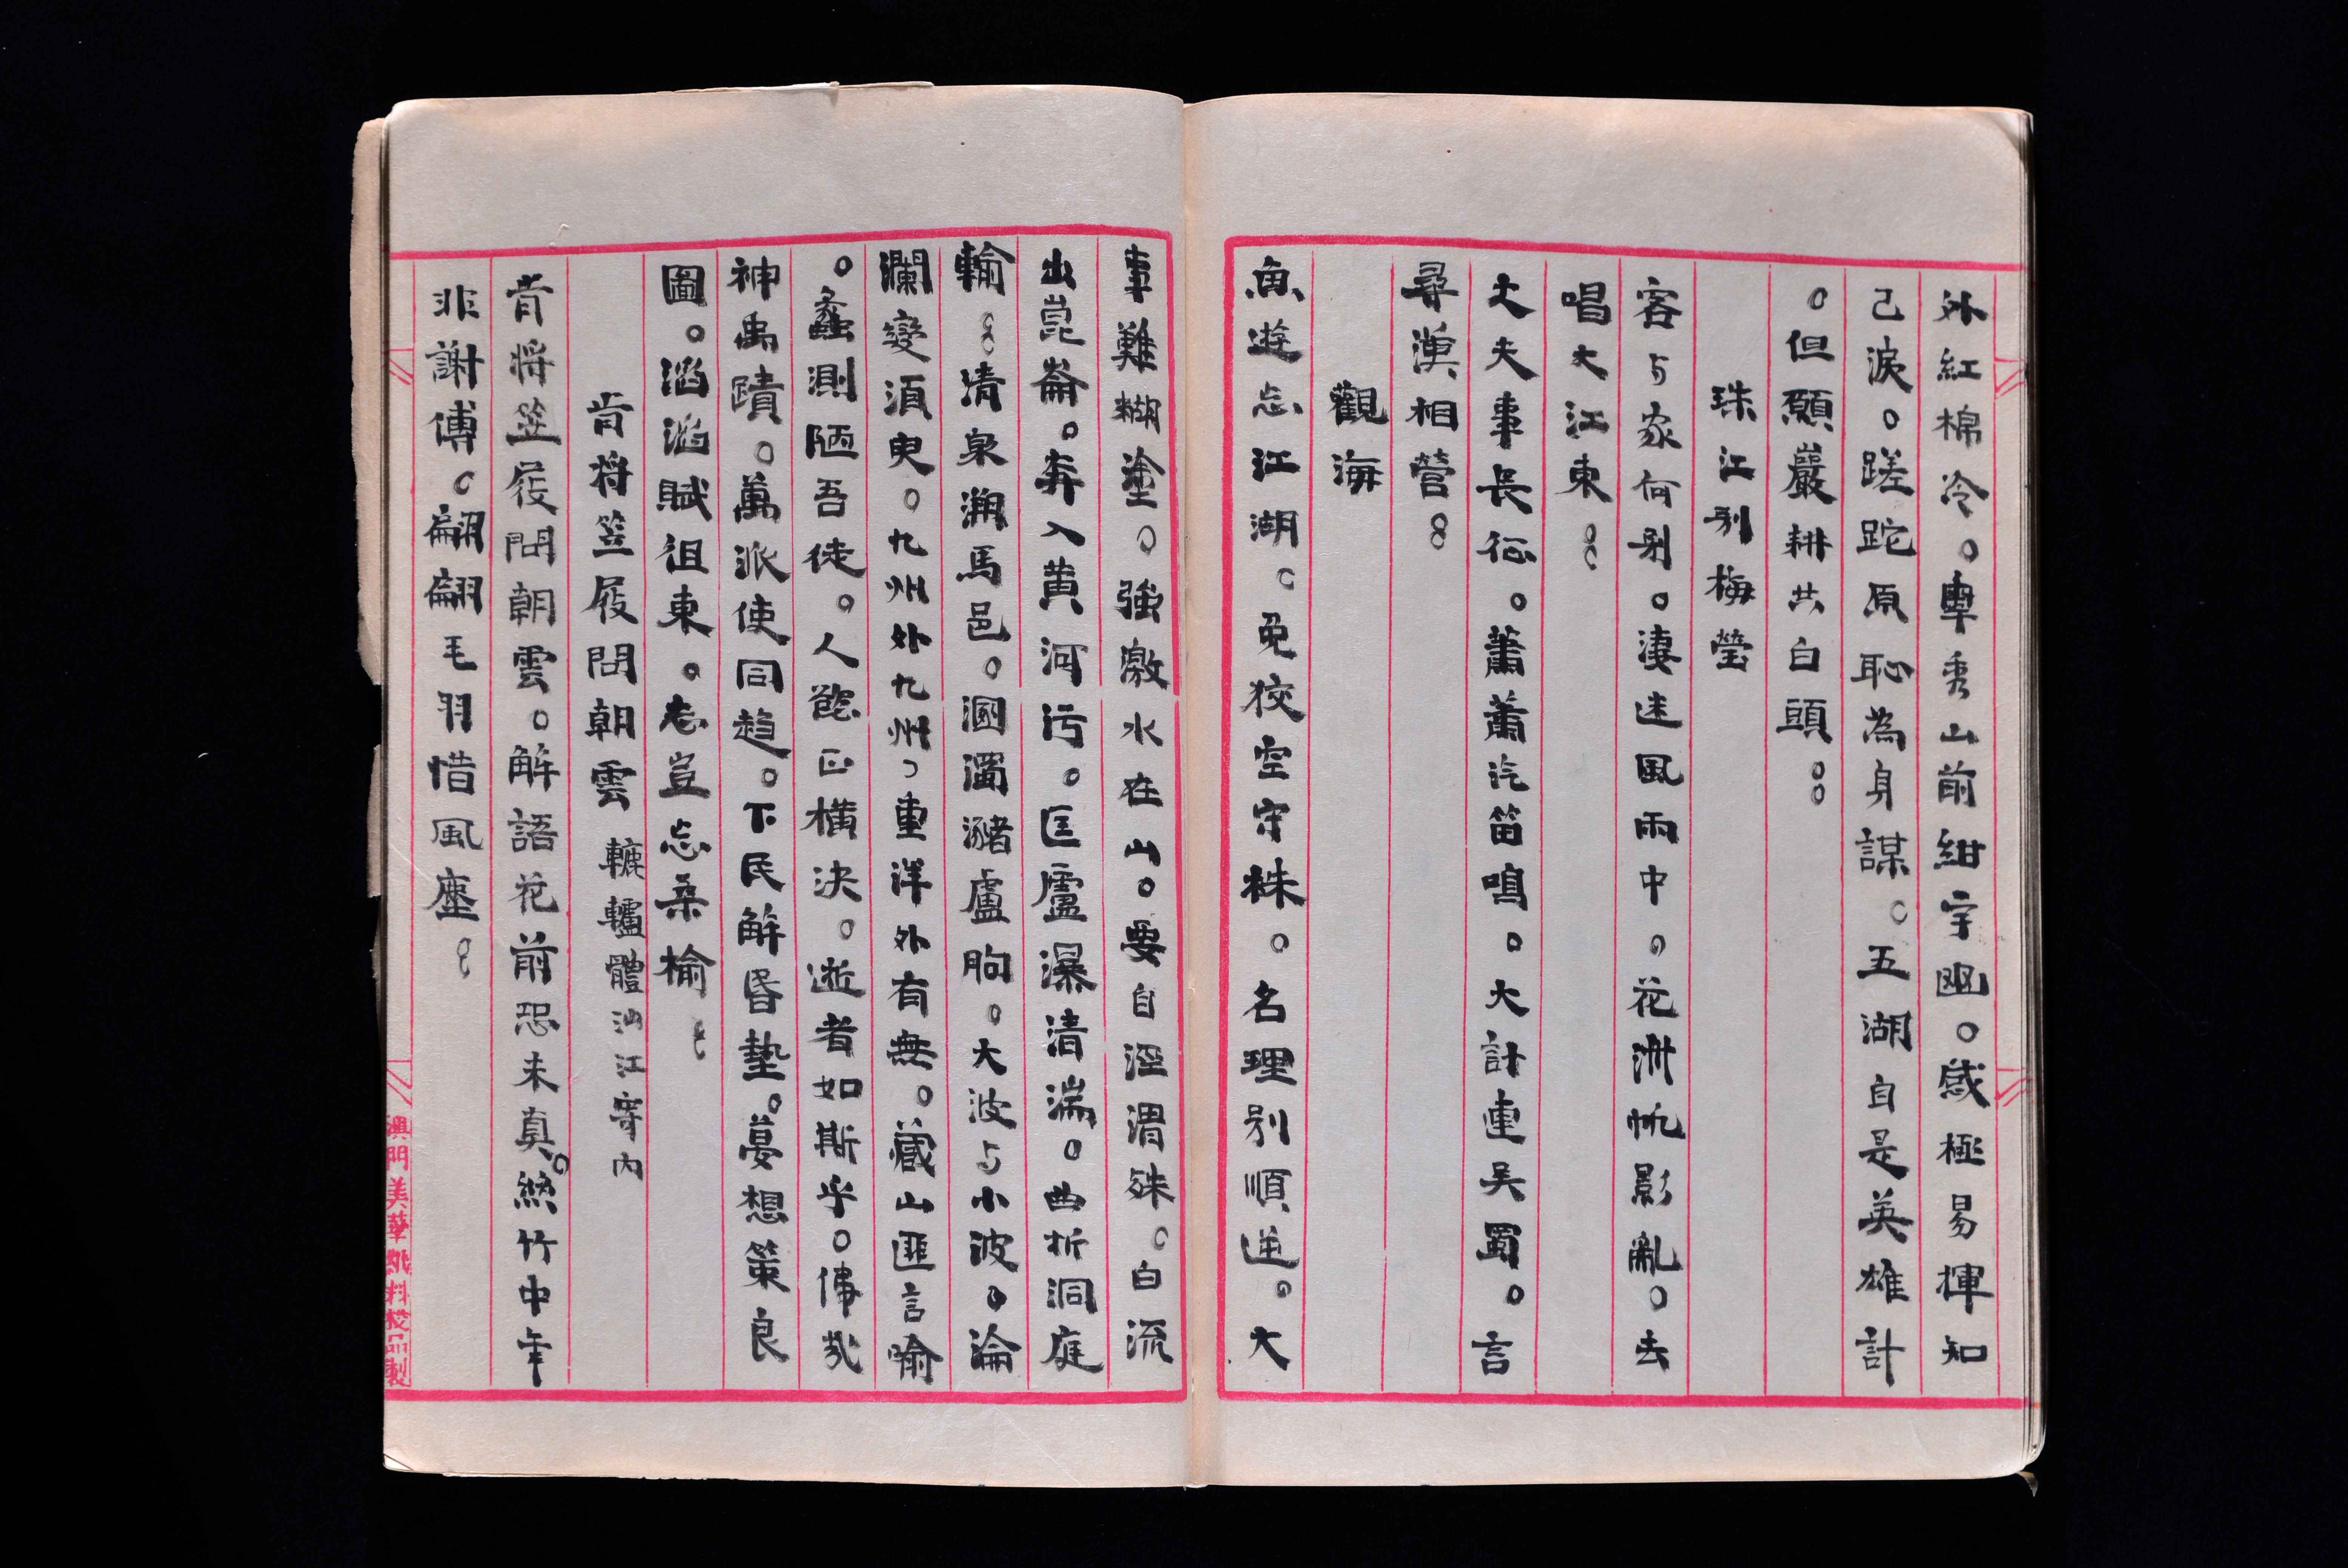 外紅棉冷。車秀山前紺宇幽。感極易揮知
己淚。蹉跎原恥為身謀。五湖自是英雄計
。但願巖耕共白頭。。
珠江別梅瑩
客与家何别。淒迷風雨中。花洲帆影亂。去
唱大江東。。
丈夫事長征。蕭蕭汽笛鳴。大計連吳蜀。言
尋漢相營。。
觀海
魚遊忘江湖。兔狡空守株。名理别順逆。大
事難糊塗。強激水在山。要自涇渭殊。白流
出崑崙。奔入黃河污。匡廬瀑清湍。曲折洞庭
輸。。清泉溯馬邑。溷濁瀦盧朐。大波与小波。淪
瀾變須臾。九州外九州。重洋外有無。藏山匪言喻
。蠡測陋吾徒。人慾正橫決。逝者如斯乎。佛哉
神禹蹟。萬派使同趨。下民解昏墊。夢想策良
圖。滔滔賦徂東。志豈忘桑榆。。
肯將笠屐問朝雲 轆轤體汕江寄內
肯將笠屐問朝雲。解語花前恐未真。絲竹中年
非謝傅。翩翩毛羽惜風塵。。
澳門美華紙料校品製